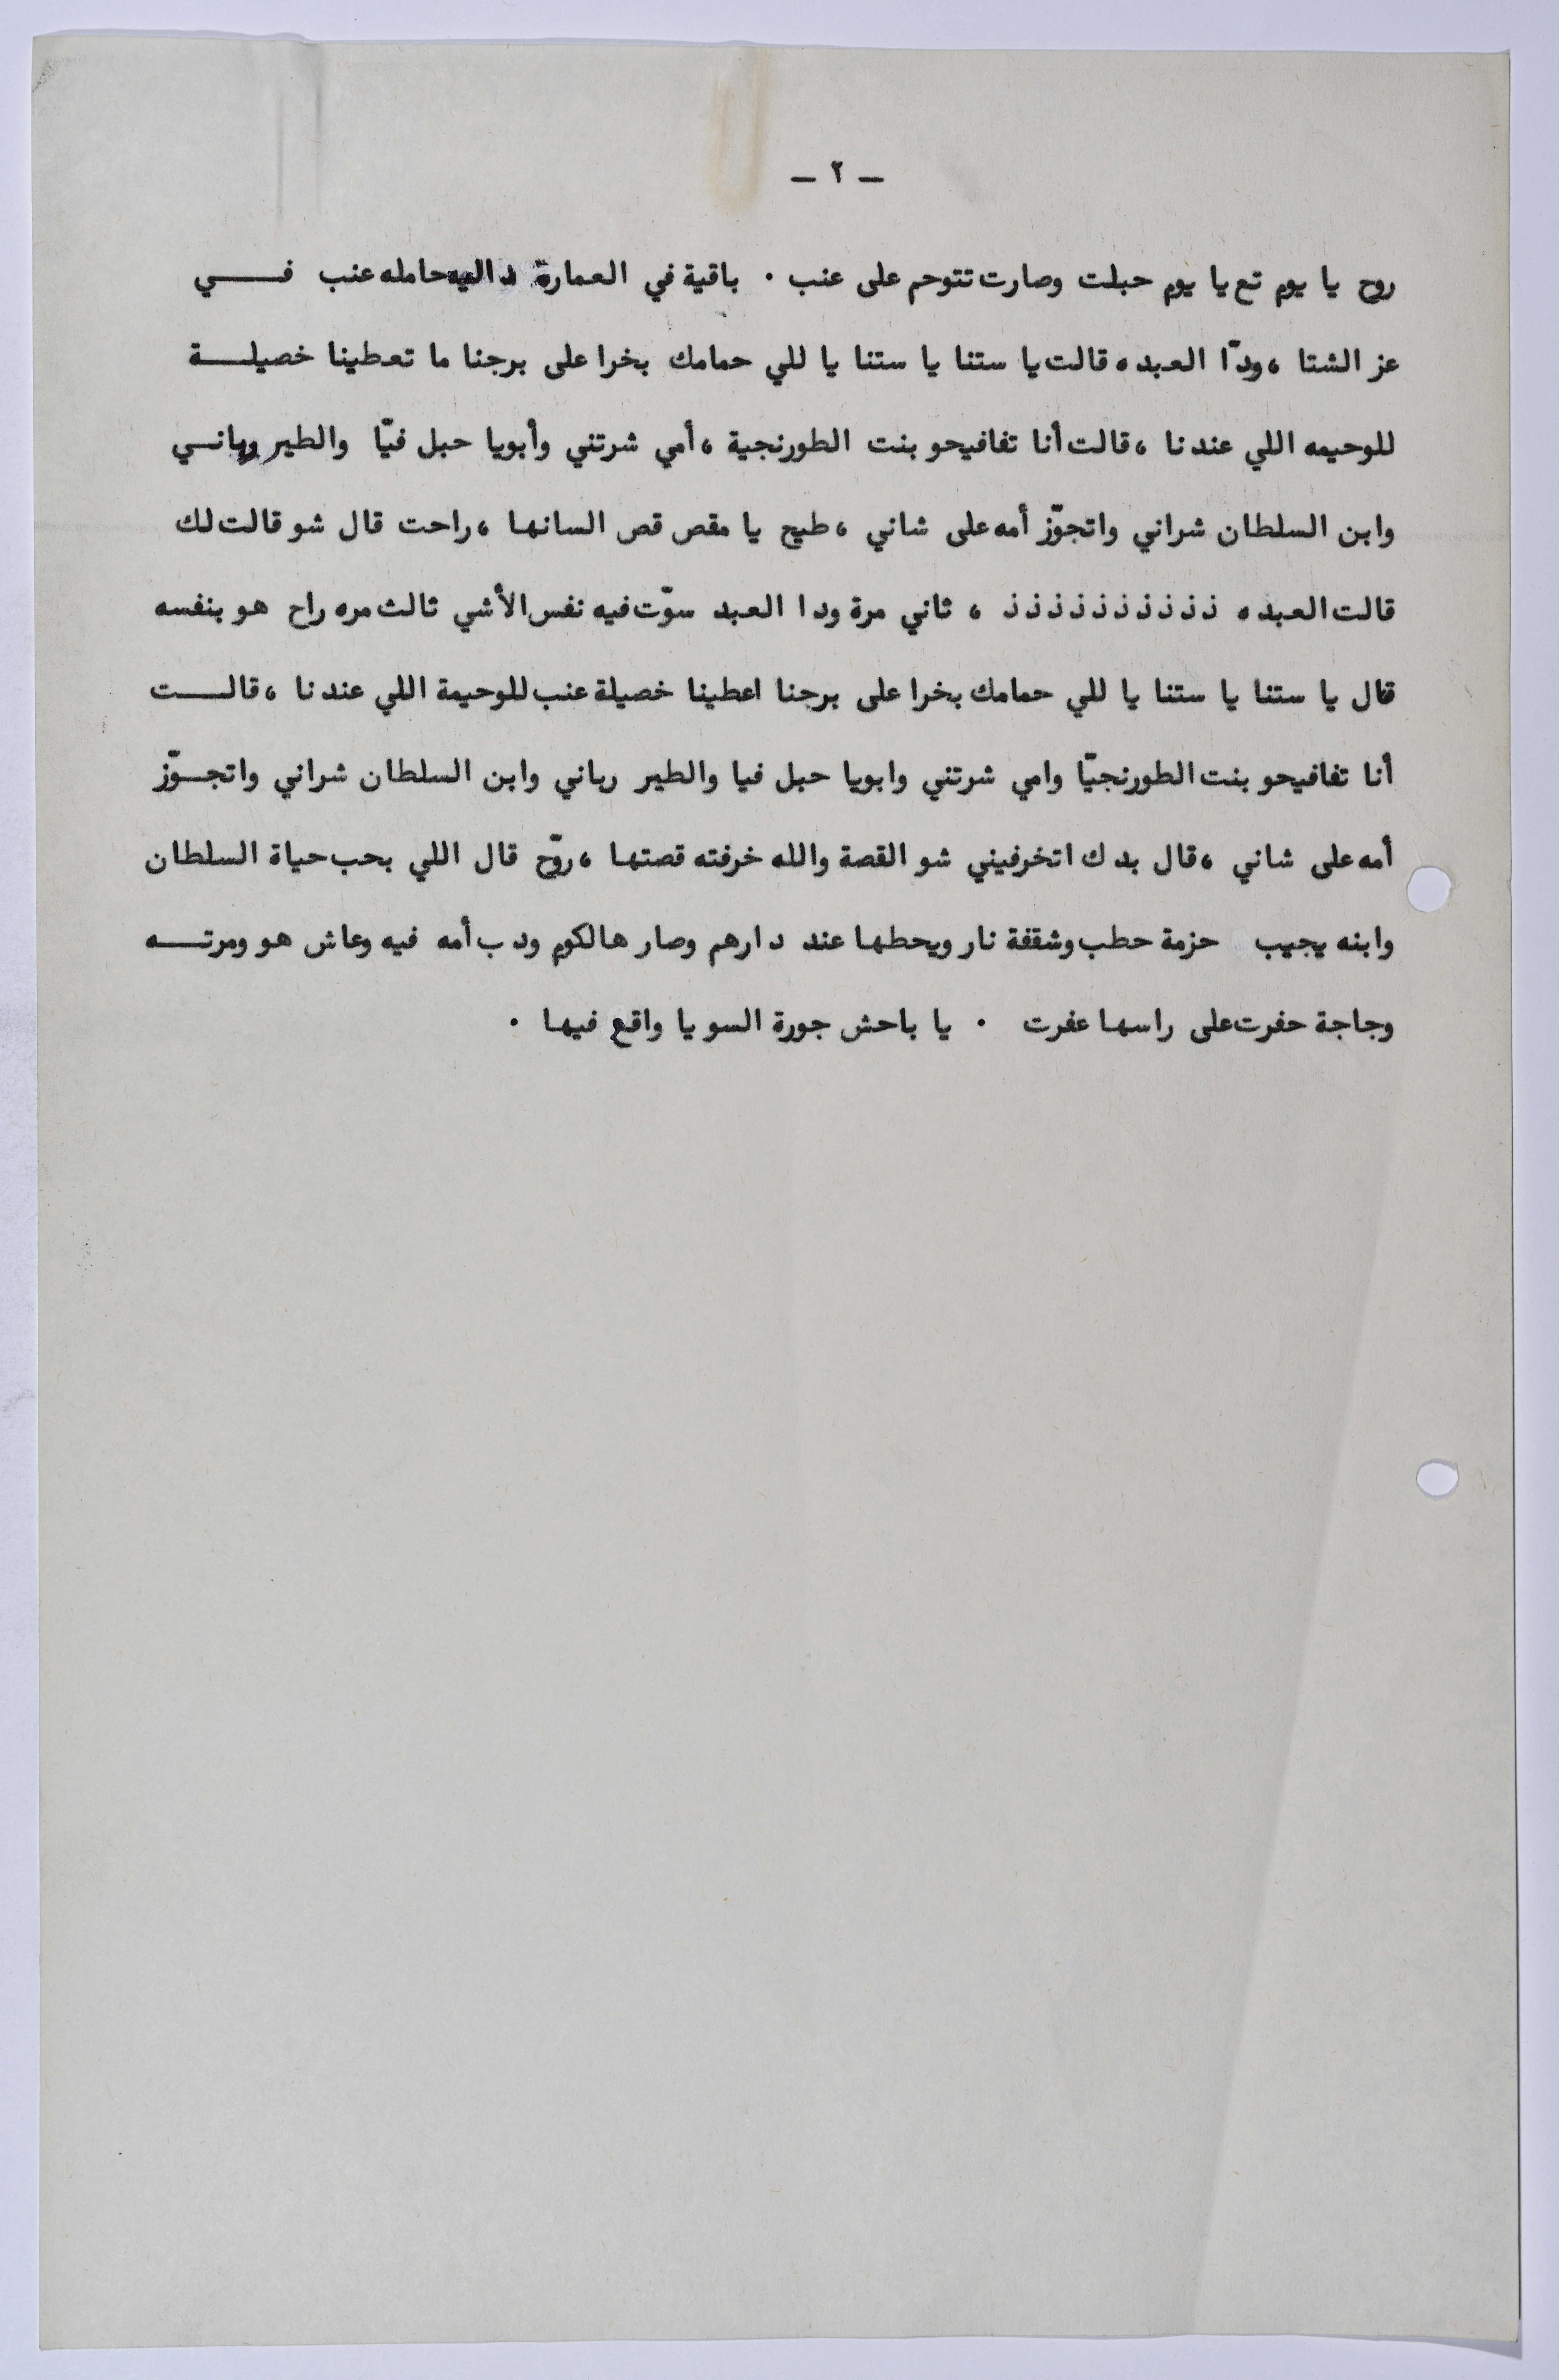 – ٢ –
روح يا يوم تع يا يوم حبلت وصارت تتوحم على عنب . باقية في العمارة داليه حامله عنب في
عز الشتا ، ودّا العبده قالت يا ستنا يا ستنا يا للي حمامك بخرا على برجنا ما تعطينا خصيلة
للوحيمه اللي عندنا ، قالت أنا تفافيحو بنت الطورنجية ، أمي شرتني وأبويا حبل فيّا والطير رباني
وابن السلطان شراني واتجوّز أمه على شاني ، طيح يا مقص قص السانها ، راحت قال شو قالت لك
قالت العبده ذ ذ ذ ذ ذ ذ ذ ذ ذ ذ ، ثاني مرة ودا العبد سوّت فيه نفس الأشي ثالث مره راح هو بنفسه
قال يا ستنا يا ستنا يا للي حمامك بخرا على برجنا اعطينا خصيلة عنب للوحيمة اللي عندنا ، قالت
أنا تفافيحو بنت الطورنجيّا وامي شرتني وابويا حبل فيا والطير رباني وابن السلطان شراني واتجوّز
أمه على شاني ، قال بدك اتخرفيني شو القصة والله خرفته قصتها ، روّح قال اللي بحب حياة السلطان
وابنه يجيب حزمة حطب وشقفة نار ويحطها عند دارهم وصار هالكوم ودب أمه فيه وعاش هو ومرته
وجاجة حفرت على راسها عفرت . يا باحش جورة السو يا واقع فيها .